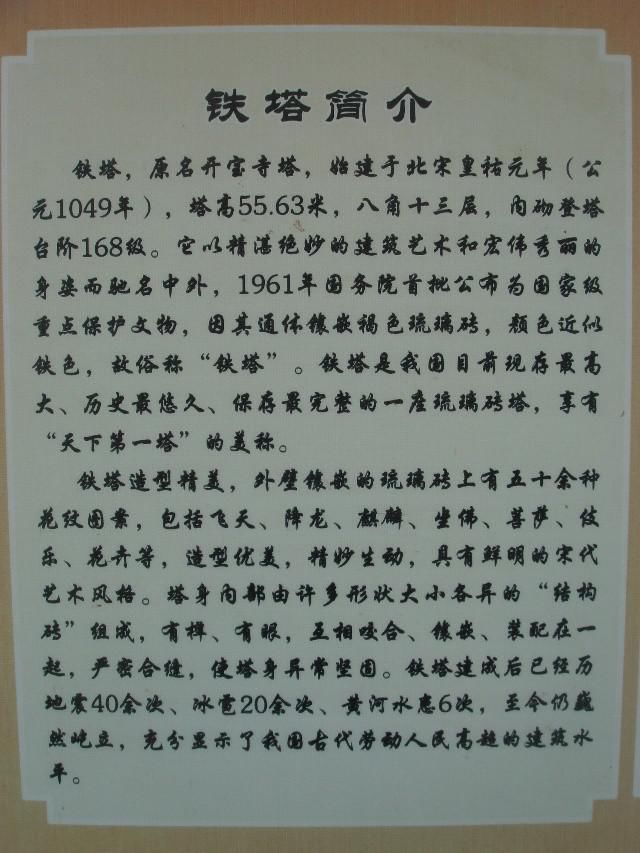 铁塔简介
铁塔，原名开宝寺塔，始建于北宋皇祐元年（公
元1049年），塔高55.63米，八角十三层，内砌登塔
台阶168级。它以精湛绝妙的建筑艺术和宏伟秀丽的
身姿而驰名中外，1961年国务院首批公布为国家级
重点保护文物，因其通体镶嵌褐色琉璃砖，颜色近似
铁色，故俗称“铁塔”。铁塔是我国目前现存最高
大、历史最悠久、保存最完整的一座琉璃砖塔，享有
“天下第一塔”的美称。
铁塔造型精美，外壁镶嵌的琉璃砖上有五十余种
花纹图案，包括飞天、降龙、麒麟、坐佛、菩萨、伎
乐、花卉等，造型优美，精妙生动，具有鲜明的宋代
艺术风格。塔身内部由许多形状大小各异的“结构
砖”组成，有榫、有眼，互相咬合、镶嵌、装配在一
起，严密合缝，使塔身异常坚固。铁塔建成后已经历
地震40余次、冰雹20余次、黄河水患6次，至今仍巍
然屹立，充分显示了我国古代劳动人民高超的建筑水
平。